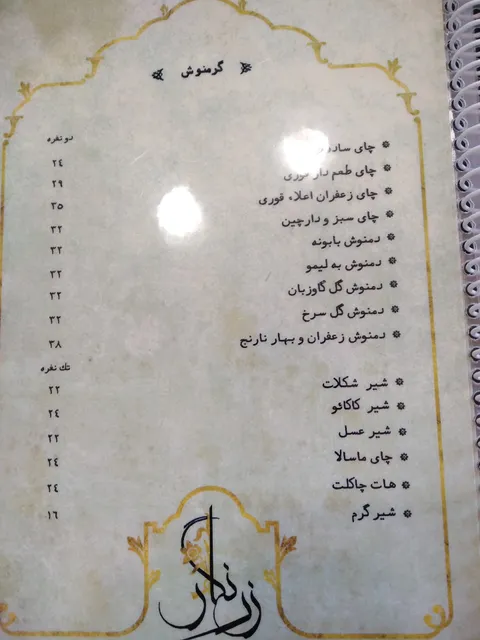 گرمنوش
دو نفره
چای ساده ۲۴
چای طعم دار قوری ۲۹
چای زعفران اعلاء قوری ۳۵
چای سبز و دارچین ۳۲
دمنوش بابونه ۳۲
دمنوش به لیمو ۳۲
دمنوش گل گاوزبان ۳۲
دمنوش گل سرخ ۳۲
دمنوش زعفران و بهار نارنج ۳۸
تک نفره
شیر شکلات ۲۲
شیر کاکائو ۲۴
شیر عسل ۲۲
چای ماسالا ۲۴
هات چاکلت ۲۴
شیر گرم ۱۶
زرنگار